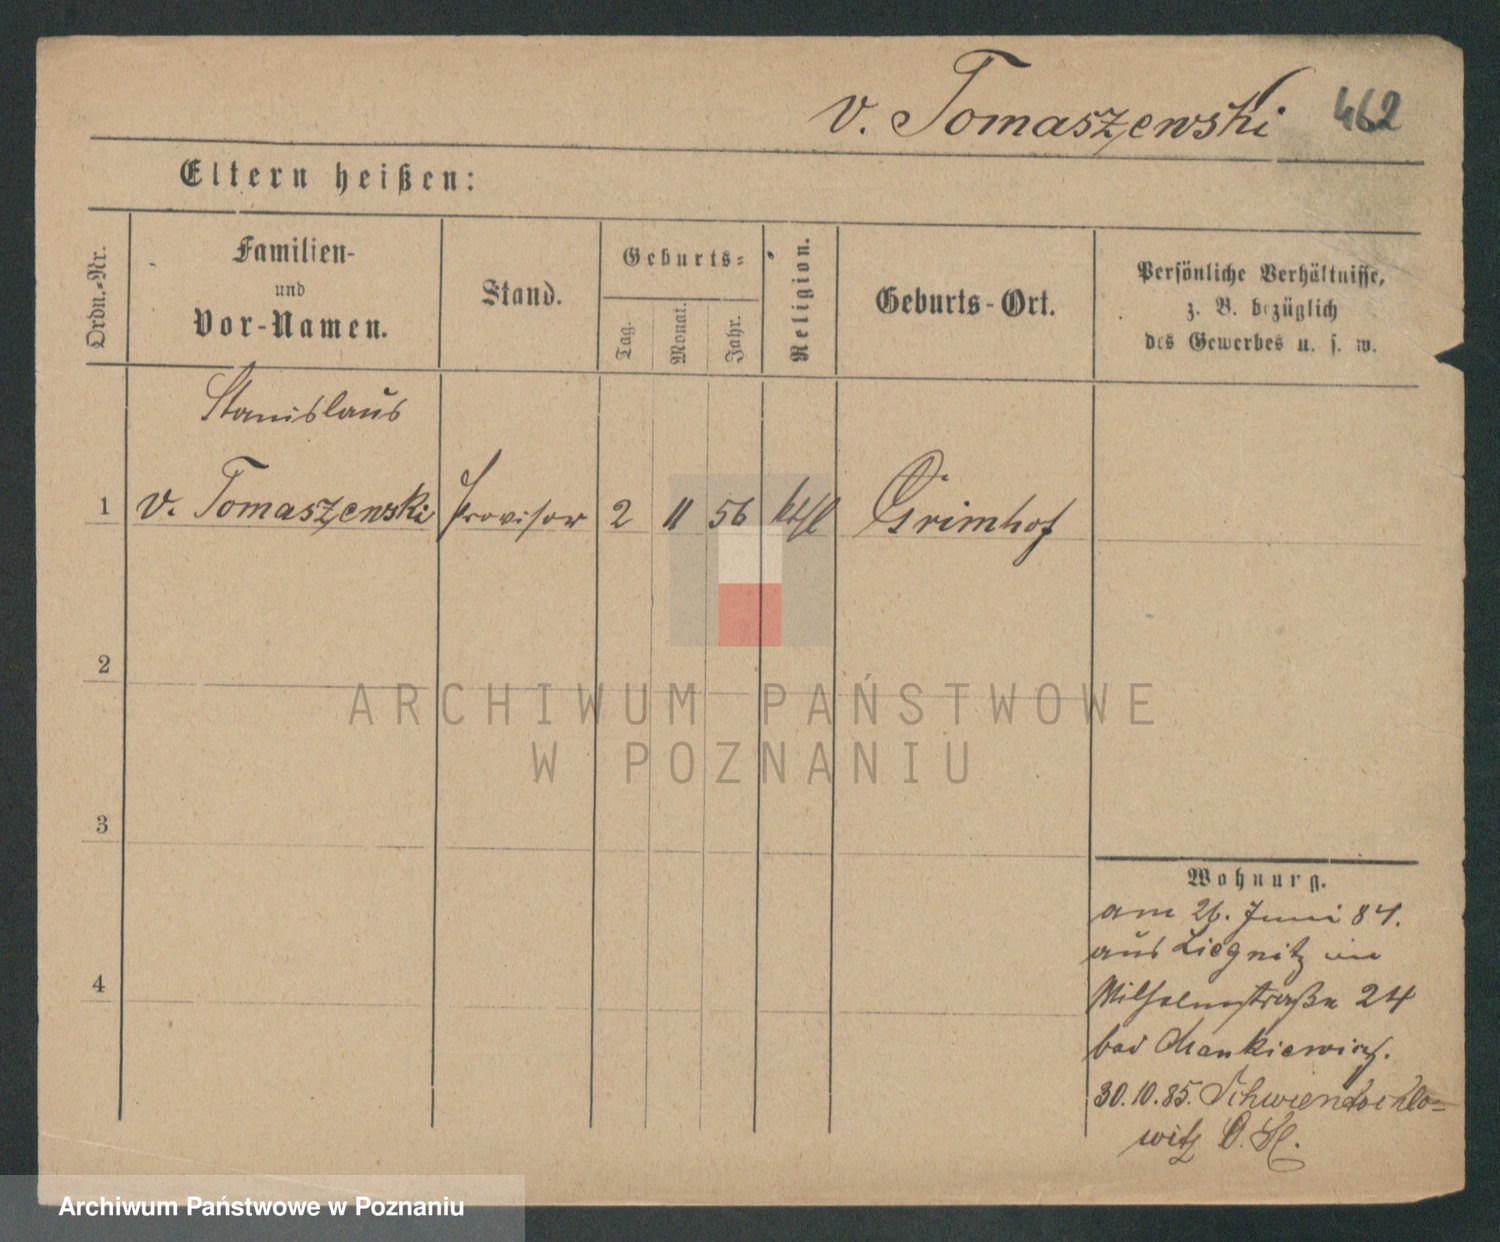 v. Tomaszewski 462
Eltern heißen:
Ordn.-Nr.
Familien-
und
Vor-Namen.
Stand.
Geburts-
Tag.
Monat.
Jahr.
Religion.
Geburts-Ort.
Persönliche Verhältnisse,
z. B. bezüglich
des Gewerbes u. s. w.
Stanislaus
1 v. Tomaszewski Provisor 2 11 56 kthl Grimhof
2
3
4
Wohnung.
am 26. Juni 84.
aus Liegnitz in
Wilhelmstraße 24
bei Mankiewicz.
30.10.85. Schwientochlo-
witz O. S.
ARCHIWUM PAŃSTWOWE
W POZNANIU
Archiwum Państwowe w Poznaniu